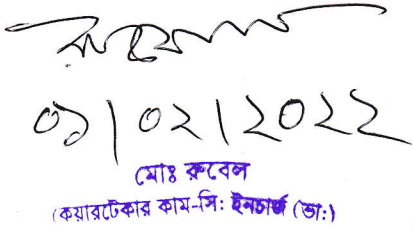 রুবেল
০১/০২/২০২২
মোঃ রুবেল
(কেয়ারটেকার কাম-সি: ইনচার্জ (ভা:)